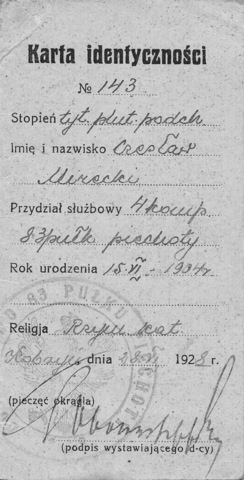 Karta identyczności
№ 143
Stopień tyt. plut. podch.
Imię i nazwisko Czesław
Mirecki
Przydział służbowy 4 komp.
83 pułk piechoty
Rok urodzenia 15-VI-1904 r
Religja Rzym kat
Kobryń, dnia 28 VI 1928 r.
(pieczęć okrągła)
(podpis wystawiającego d-cy)